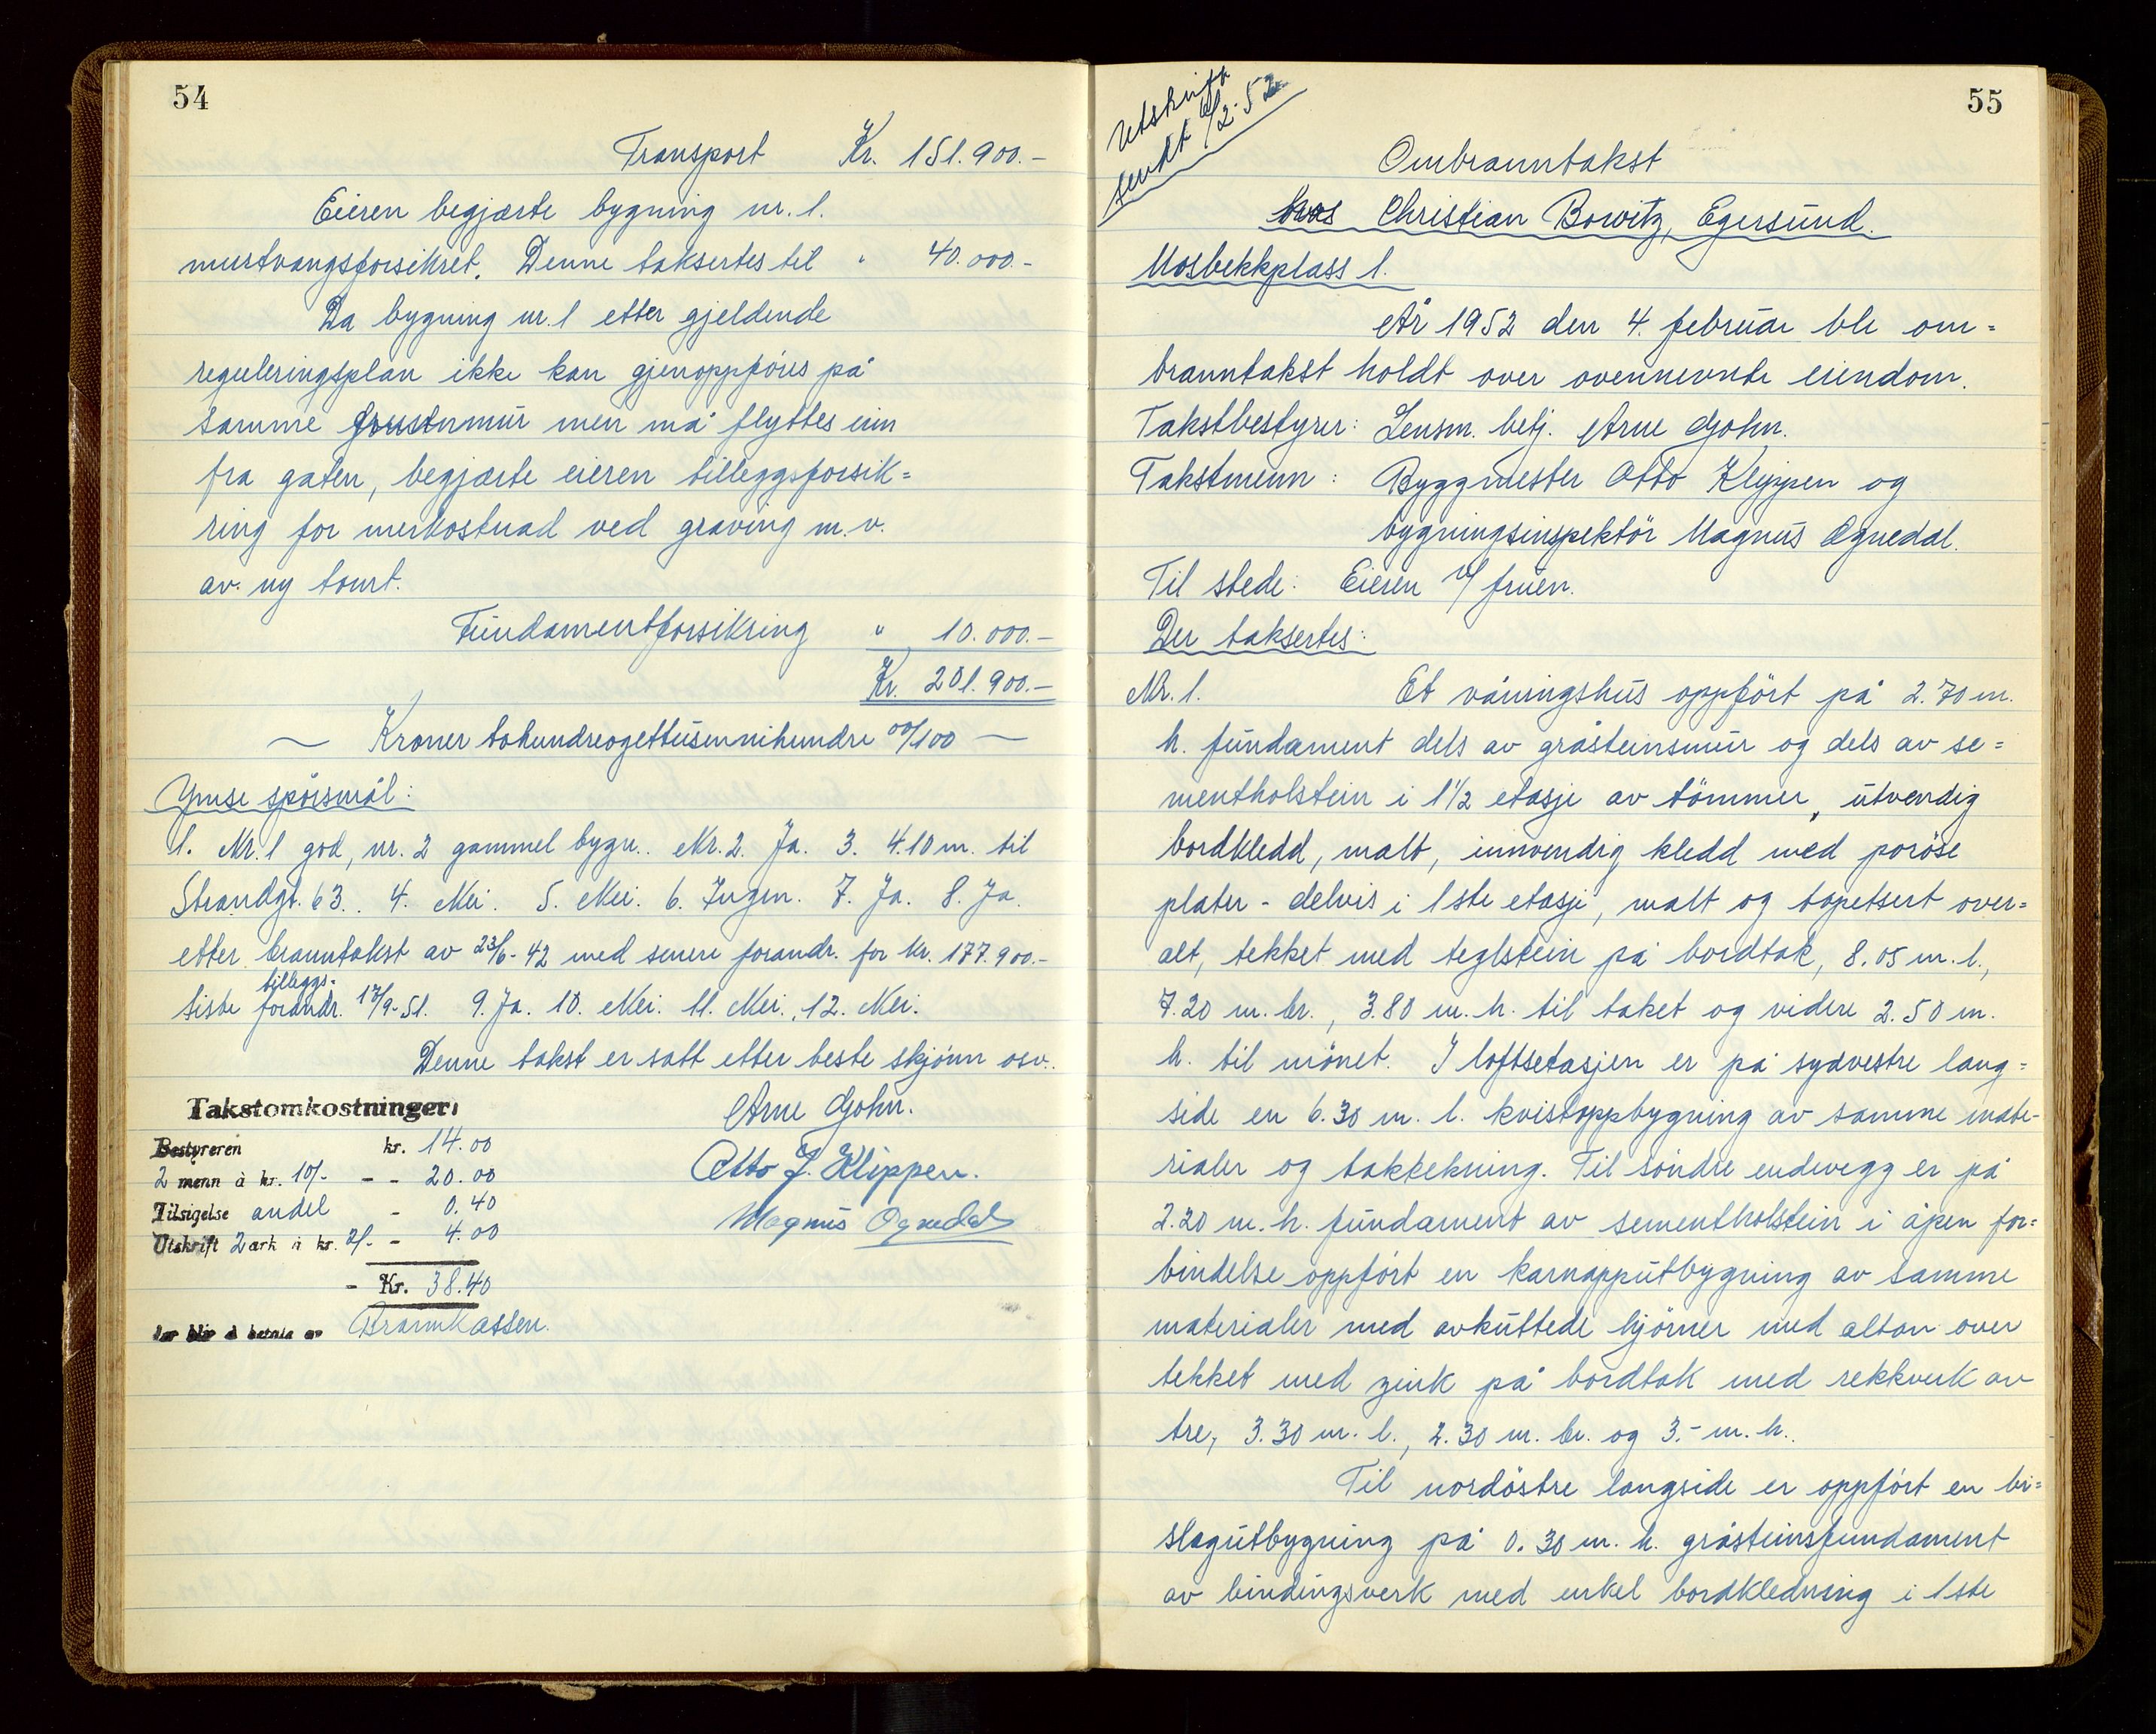 54
Transport Kr. 151.900.-
Eieren begjærte bygning nr. 1.
murtvangsforsikret. Denne taksertes til " 40.000.-
Da bygning nr. 1 etter gjeldende
reguleringsplan ikke kan gjenoppføres på
samme grunnmur men må flyttes inn
fra gaten, begjærte eieren tilleggsforsik=
ring for merkostnad ved graving m.v.
av ny tomt.
Fundamentforsikring " 10.000.-
Kr. 201.900.-
— Kroner tohundreogettusennihundre 00/100 —
Ymse spørsmål:
1. Nr. 1 god, nr. 2 gammel bygn.. Nr. 2. Ja. 3. 4.10 m. til
Strandgt. 63.. 4. Nei. 5. Nei. 6. Ingen. 7. Ja. 8. Ja.
etter branntakst av 23/6-42 med senere forandr. for kr. 177.900.-
tilleggs-
siste forandr. 17/9-51. 9. Ja. 10. Nei. 11. Nei., 12. Nei.
Denne takst er satt etter beste skjønn osv..
Takstomkostninger:
Arne Gohn.
Bestyreren kr. 14.00
2 menn à kr. 10/- - - 20.00
Otto J. Klippen.
Tilsigelse andel - 0.40
Magnus Ognedal
Utskrift 2 ark à kr. 2/- - 4.00
- Kr. 38.40
som blir å betale av Brannkassen.
55
Utskrift
sendt 6/2-52
Ombranntakst
hos Christian Bowitz, Egersund.
Mosbekkplass 1.
År 1952 den 4. februar ble om=
branntakst holdt over ovennevnte eiendom.
Takstbestyrer: Lensm. betj. Arne Gohn.
Takstmenn: Byggmester Otto Klippen og
bygningsinspektør Magnus Ognedal.
Til stede: Eieren v/ fruen.
Der taksertes:
Nr. 1. Et våningshus oppført på 2.70 m.
h. fundament dels av gråsteinsmur og dels av se=
mentholstein i 1 1/2 etasje av tømmer, utvendig
bordkledd, malt, innvendig kledd med porøse
plater - delvis i 1ste etasje, malt og tapetsert over=
alt, tekket med teglstein på bordtak, 8.05 m. l.,
7.20 m. br., 3.80 m. h. til taket og videre 2.50 m.
h. til mønet. I loftsetasjen er på sydvestre lang=
side en 6.30 m. l. kvistoppbygning av samme mate-
rialer og taktekning. Til søndre endevegg er på
2.20 m. h. fundament av sementholstein i åpen for=
bindelse oppført en karnapputbygning av samme
materialer med avkuttede hjørner med altan over
tekket med zink på bordtak med rekkverk av
tre, 3.30 m. l., 2.30 m. br. og 3.- m. h..
Til nordøstre langside er oppført en bi=
slagutbygning på 0.30 m. h. gråsteinsfundament
av bindingsverk med enkel bordkledning i 1ste